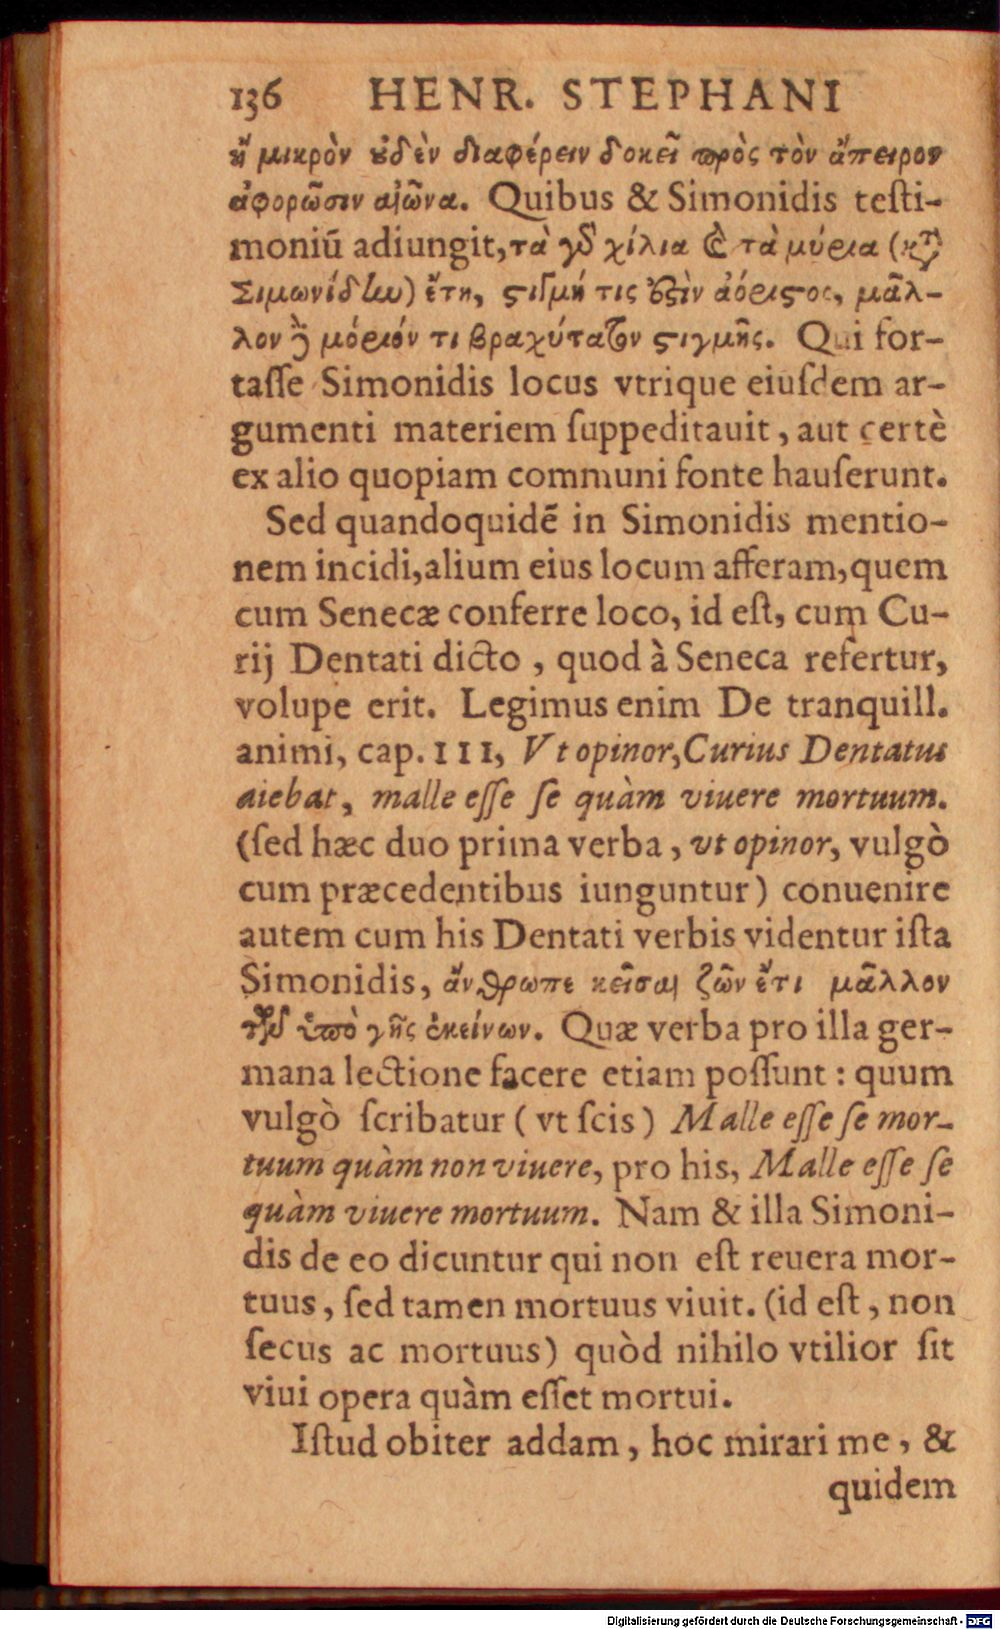 136 HENR. STEPHANI
ἢ μικρὸν ȣ̓δὲν διαφέρειν δοκεῖ πρὸς τὸν ἄπειρον
ἀφορῶσιν αἰῶνα. Quibus & Simonidis teſti-
moniũ adiungit, τὰ γὸ χίλια καὶ τὰ μύρια (κτ̀
Σιμωνίδlω) ἔτη, ϛιγμή τις ὅξὶν ἀόριϛος, μᾶλ-
λον ὃ μόριόν τι βραχύτατον ϛιγμῆς. Qui for-
taſſe Simonidis locus vtrique eiuſdem ar-
gumenti materiem ſuppeditauit, aut certè
ex alio quopiam communi fonte hauſerunt.
Sed quandoquidẽ in Simonidis mentio-
nem incidi, alium eius locum afferam, quem
cum Senecæ conferre loco, id eſt, cum Cu-
rij Dentati dicto, quod à Seneca refertur,
volupe erit. Legimus enim De tranquill.
animi, cap. III, Vt opinor, Curius Dentatus
aiebat, malle eſſe ſe quàm viuere mortuum.
(ſed hæc duo prima verba, vt opinor, vulgò
cum præcedentibus iunguntur) conuenire
autem cum his Dentati verbis videntur iſta
Simonidis, ἄνθρωπε κεῖσαι ζῶν ἔτι μᾶλλον
τῶν ὑπὸ γῆς ἐκείνων. Quæ verba pro illa ger-
mana lectione facere etiam poſſunt: quum
vulgò ſcribatur (vt ſcis) Malle eſſe ſe mor-
tuum quàm non viuere, pro his, Malle eſſe ſe
quàm viuere mortuum. Nam & illa Simoni-
dis de eo dicuntur qui non eſt reuera mor-
tuus, ſed tamen mortuus viuit. (id eſt, non
ſecus ac mortuus) quòd nihilo vtilior ſit
viui opera quàm eſſet mortui.
Iſtud obiter addam, hoc mirari me, &
quidem
Digitalisierung gefördert durch die Deutsche Forschungsgemeinschaft - DFG